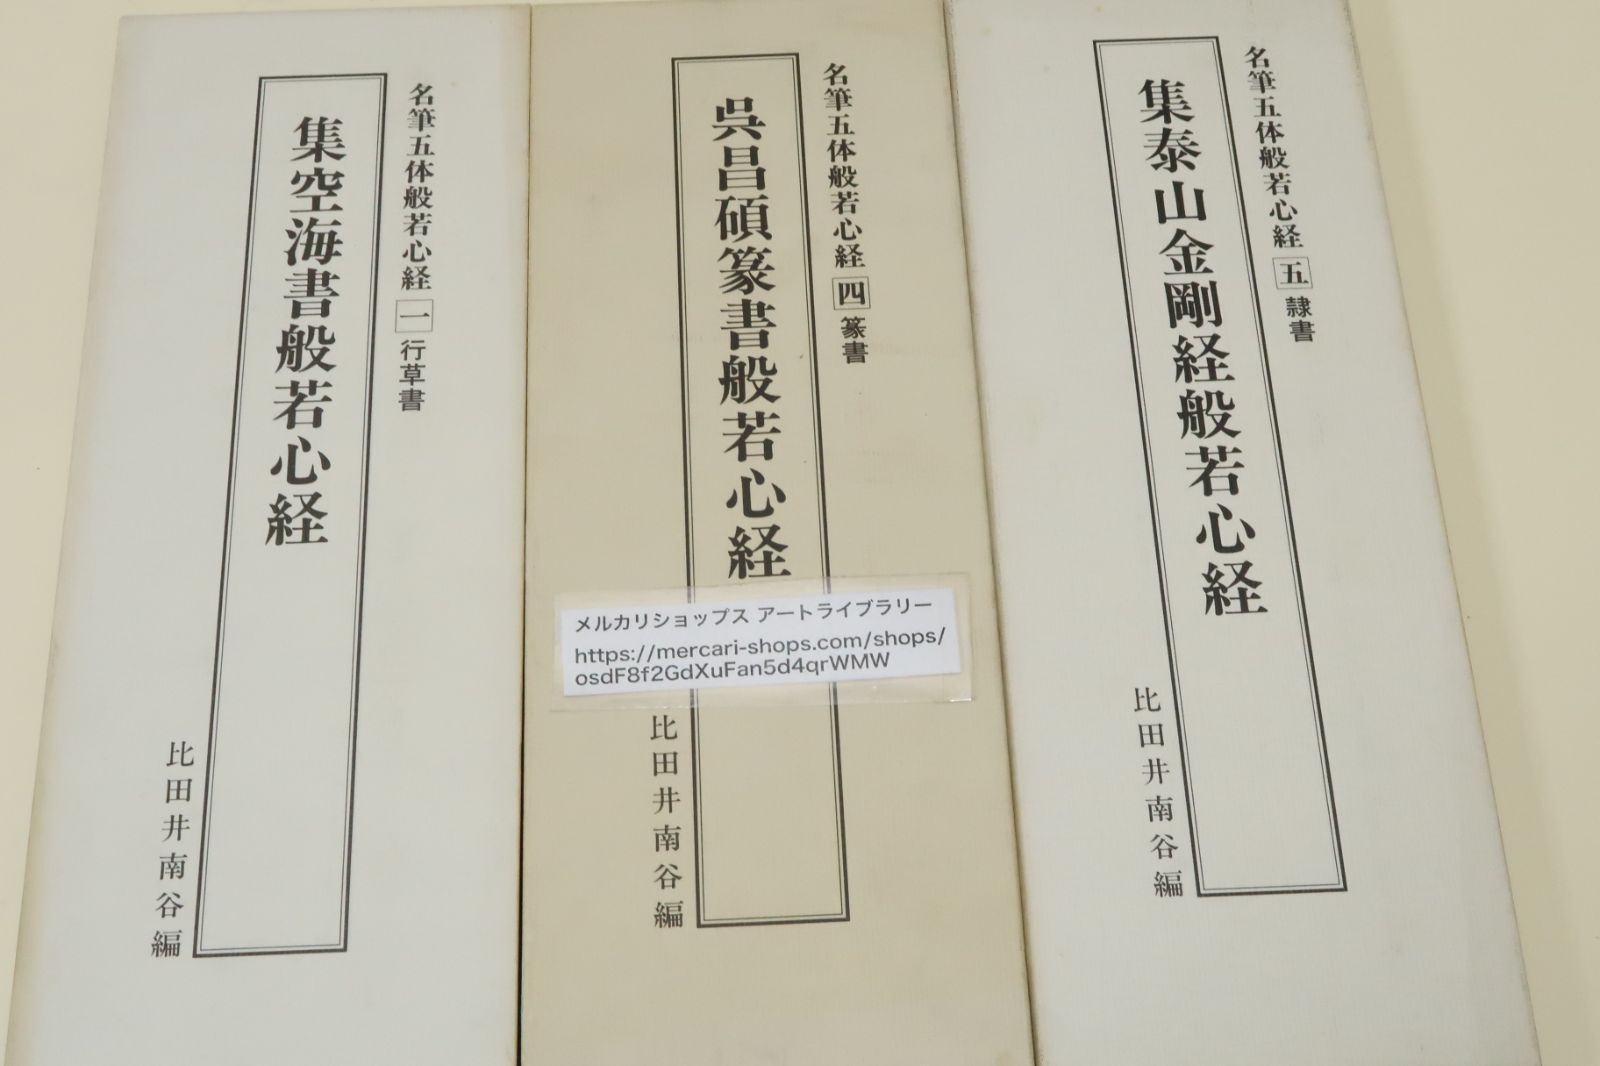 名筆五体般若心経 一 行草書
集空海書般若心経
比田井南谷編
名筆五体般若心経 四 篆書
呉昌碩篆書般若心経
比田井南谷編
メルカリショップス アートライブラリー
https://mercari-shops.com/shops/
osdF8f2GdXuFan5d4qrWMW
名筆五体般若心経 五 隷書
集泰山金剛経般若心経
比田井南谷編